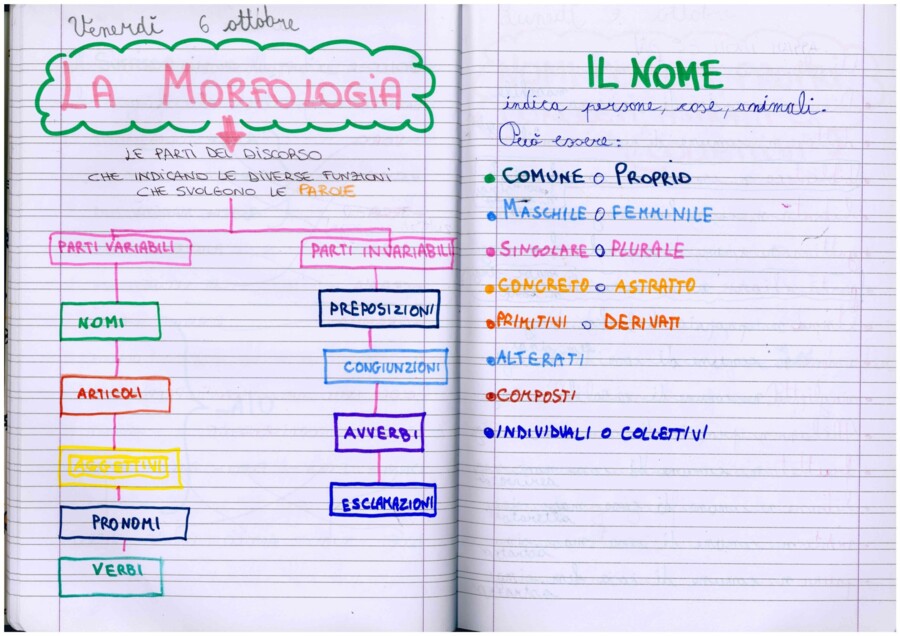 Venerdì 6 ottobre
LA MORFOLOGIA
LE PARTI DEL DISCORSO
CHE INDICANO LE DIVERSE FUNZIONI
CHE SVOLGONO LE PAROLE
PARTI VARIABILI
NOMI
ARTICOLI
AGGETTIVI
PRONOMI
VERBI
PARTI INVARIABILI
PREPOSIZIONI
CONGIUNZIONI
AVVERBI
ESCLAMAZIONI
IL NOME
indica persone, cose, animali.
Può essere:
• COMUNE O PROPRIO
• MASCHILE O FEMMINILE
• SINGOLARE O PLURALE
• CONCRETO O ASTRATTO
• PRIMITIVI O DERIVATI
• ALTERATI
• COMPOSTI
• INDIVIDUALI O COLLETTIVI